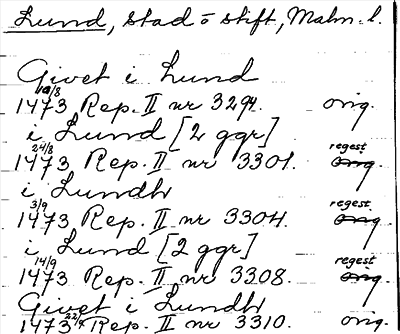 Lund, stad o stift, Malm. l.
Givet i Lund
19/8
1473 Rep. II nr 3294. orig.
i Lund [2 ggr]
24/8 regest
1473 Rep. II nr 3301. orig.
i Lundh
3/9 regest
1473 Rep. II nr 3304. orig.
i Lund [2 ggr]
14/9 regest
1473 Rep. II nr 3308. orig.
Givet i Lundh
1473 22/9 Rep. II nr 3310. orig.